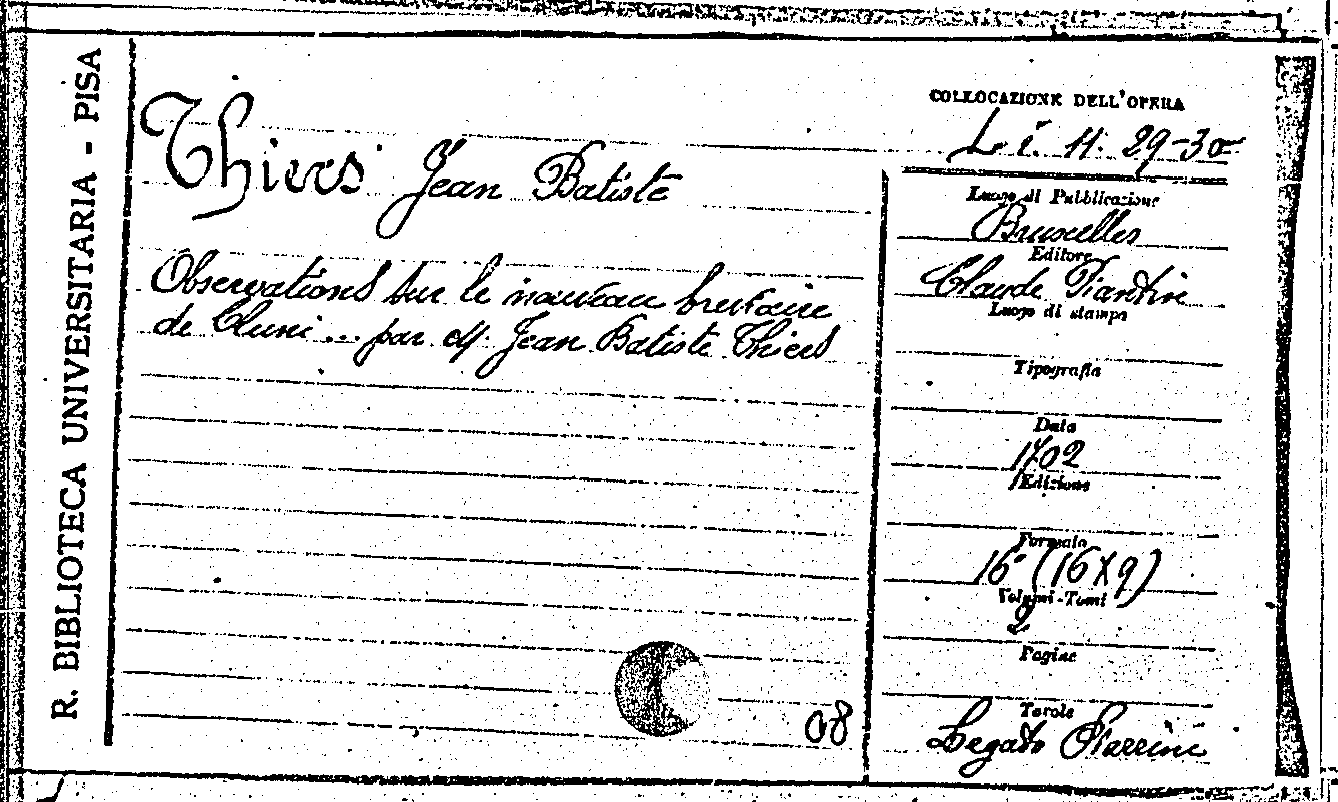 R. BIBLIOTECA UNIVERSITARIA - PISA
COLLOCAZIONE DELL'OPERA
L i. 11. 29-30
Thiers Jean Batiste
Observations sur le nouveau breviaire
de Cluni ... par M. Jean Batiste Thiers
Luogo di Pubblicazione
Bruxelles
Editore
Claude Plantin
Luogo di stampa
Tipografia
Data
1702
Edizione
Formato
16° (16X9)
Volumi - Tomi
2
Pagine
Tavole
Legato
08